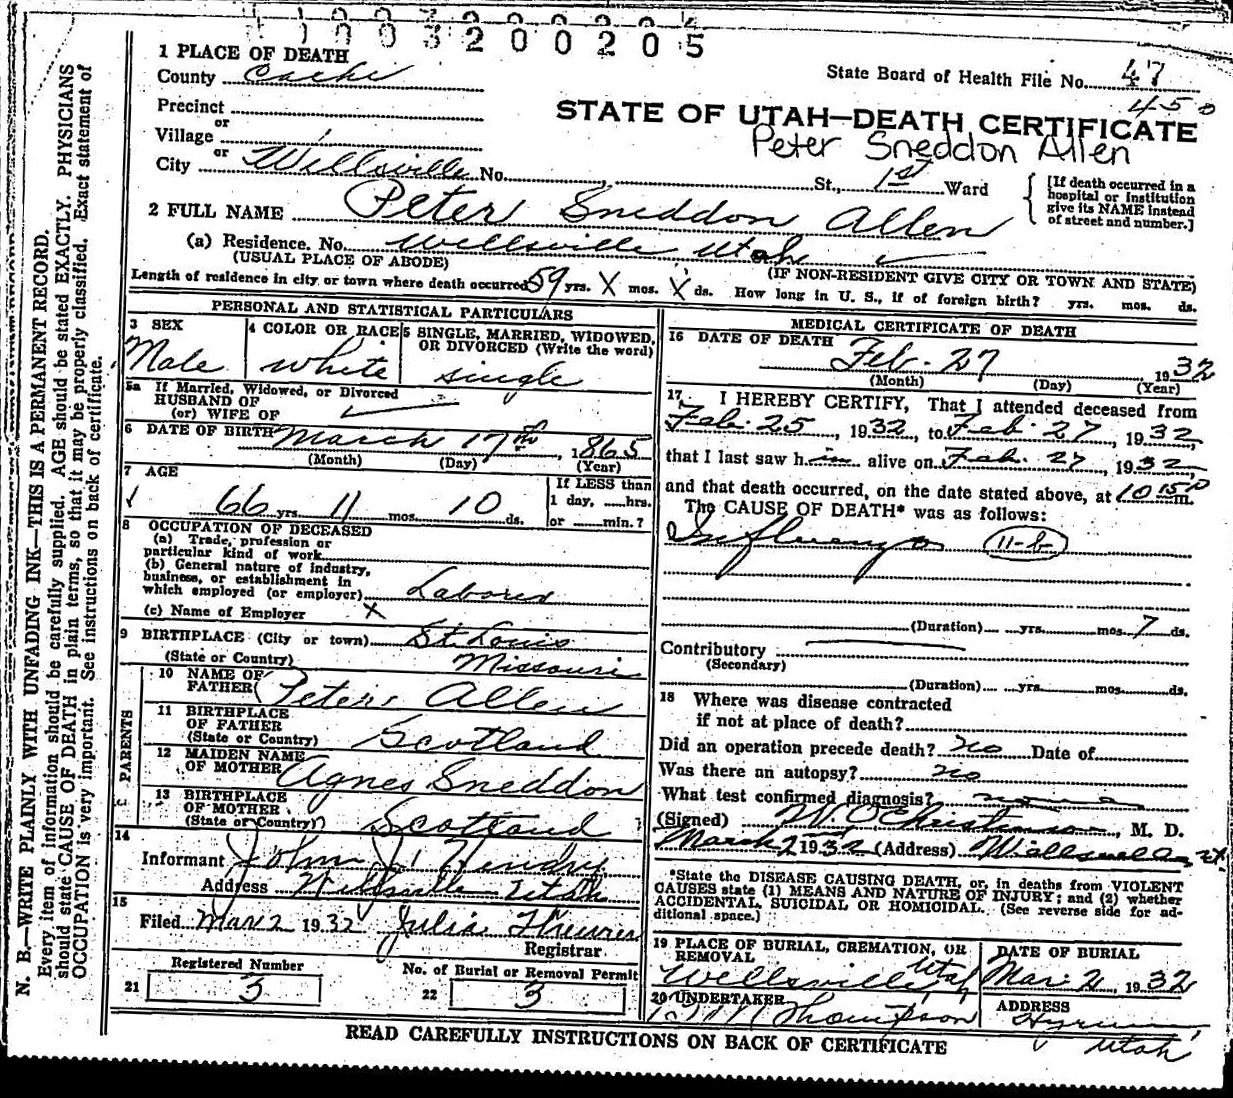 1003200205
1 PLACE OF DEATH
County Cache
State Board of Health File No. 47
450
Precinct
or
Village
or
City Wellsville No. St., 1st Ward
STATE OF UTAH—DEATH CERTIFICATE
Peter Sneddon Allen
[If death occurred in a
hospital or institution
give its NAME instead
of street and number.]
2 FULL NAME Peter Sneddon Allen
(a) Residence. No. Wellsville Utah
(USUAL PLACE OF ABODE)
(IF NON-RESIDENT GIVE CITY OR TOWN AND STATE)
Length of residence in city or town where death occurred 59 yrs. X mos. X ds. How long in U. S., if of foreign birth? yrs. mos. ds.
PERSONAL AND STATISTICAL PARTICULARS
3 SEX
Male
4 COLOR OR RACE
white
5 SINGLE, MARRIED, WIDOWED,
OR DIVORCED (Write the word)
single
5a If Married, Widowed, or Divorced
HUSBAND OF
(or) WIFE OF
6 DATE OF BIRTH March 17th, 1865
(Month) (Day) (Year)
7 AGE
66 yrs. 11 mos. 10 ds.
If LESS than
1 day, hrs.
or min.?
8 OCCUPATION OF DECEASED
(a) Trade, profession or
particular kind of work
(b) General nature of industry,
business, or establishment in
which employed (or employer) Laborer
(c) Name of Employer X
9 BIRTHPLACE (City or town) St. Louis
(State or Country) Missouri
PARENTS
10 NAME OF
FATHER Peter Allen
11 BIRTHPLACE
OF FATHER
(State or Country) Scotland
12 MAIDEN NAME
OF MOTHER Agnes Sneddon
13 BIRTHPLACE
OF MOTHER
(State or Country) Scotland
14
Informant John J. Hendry
Address Wellsville Utah
15
Filed Mar 2 1932 Julia
Registrar
Registered Number
21 3
No. of Burial or Removal Permit
22 3
MEDICAL CERTIFICATE OF DEATH
16 DATE OF DEATH
Feb. 27 1932
(Month) (Day) (Year)
17 I HEREBY CERTIFY, That I attended deceased from
Feb. 25, 1932, to Feb. 27, 1932,
that I last saw him alive on Feb. 27, 1932,
and that death occurred, on the date stated above, at 10 15 m.
The CAUSE OF DEATH* was as follows:
Influenza 11-b
(Duration) yrs. mos. 7 ds.
Contributory
(Secondary)
(Duration) yrs. mos. ds.
18 Where was disease contracted
if not at place of death?
Did an operation precede death? no Date of
Was there an autopsy? no
What test confirmed diagnosis?
(Signed) W. O. Christenson, M. D.
March 2 1932 (Address) Wellsville, Ut.
*State the DISEASE CAUSING DEATH, or, in deaths from VIOLENT
CAUSES state (1) MEANS AND NATURE OF INJURY; and (2) whether
ACCIDENTAL, SUICIDAL OR HOMICIDAL. (See reverse side for ad-
ditional space.)
19 PLACE OF BURIAL, CREMATION, OR
REMOVAL
Wellsville, Utah
DATE OF BURIAL
Mar. 2, 1932
20 UNDERTAKER
Thompson
ADDRESS
Hyrum,
Utah
READ CAREFULLY INSTRUCTIONS ON BACK OF CERTIFICATE
N. B.—WRITE PLAINLY WITH UNFADING INK—THIS IS A PERMANENT RECORD.
Every item of information should be carefully supplied. AGE should be stated EXACTLY. PHYSICIANS
should state CAUSE OF DEATH in plain terms, so that it may be properly classified. Exact statement of
OCCUPATION is very important. See instructions on back of certificate.